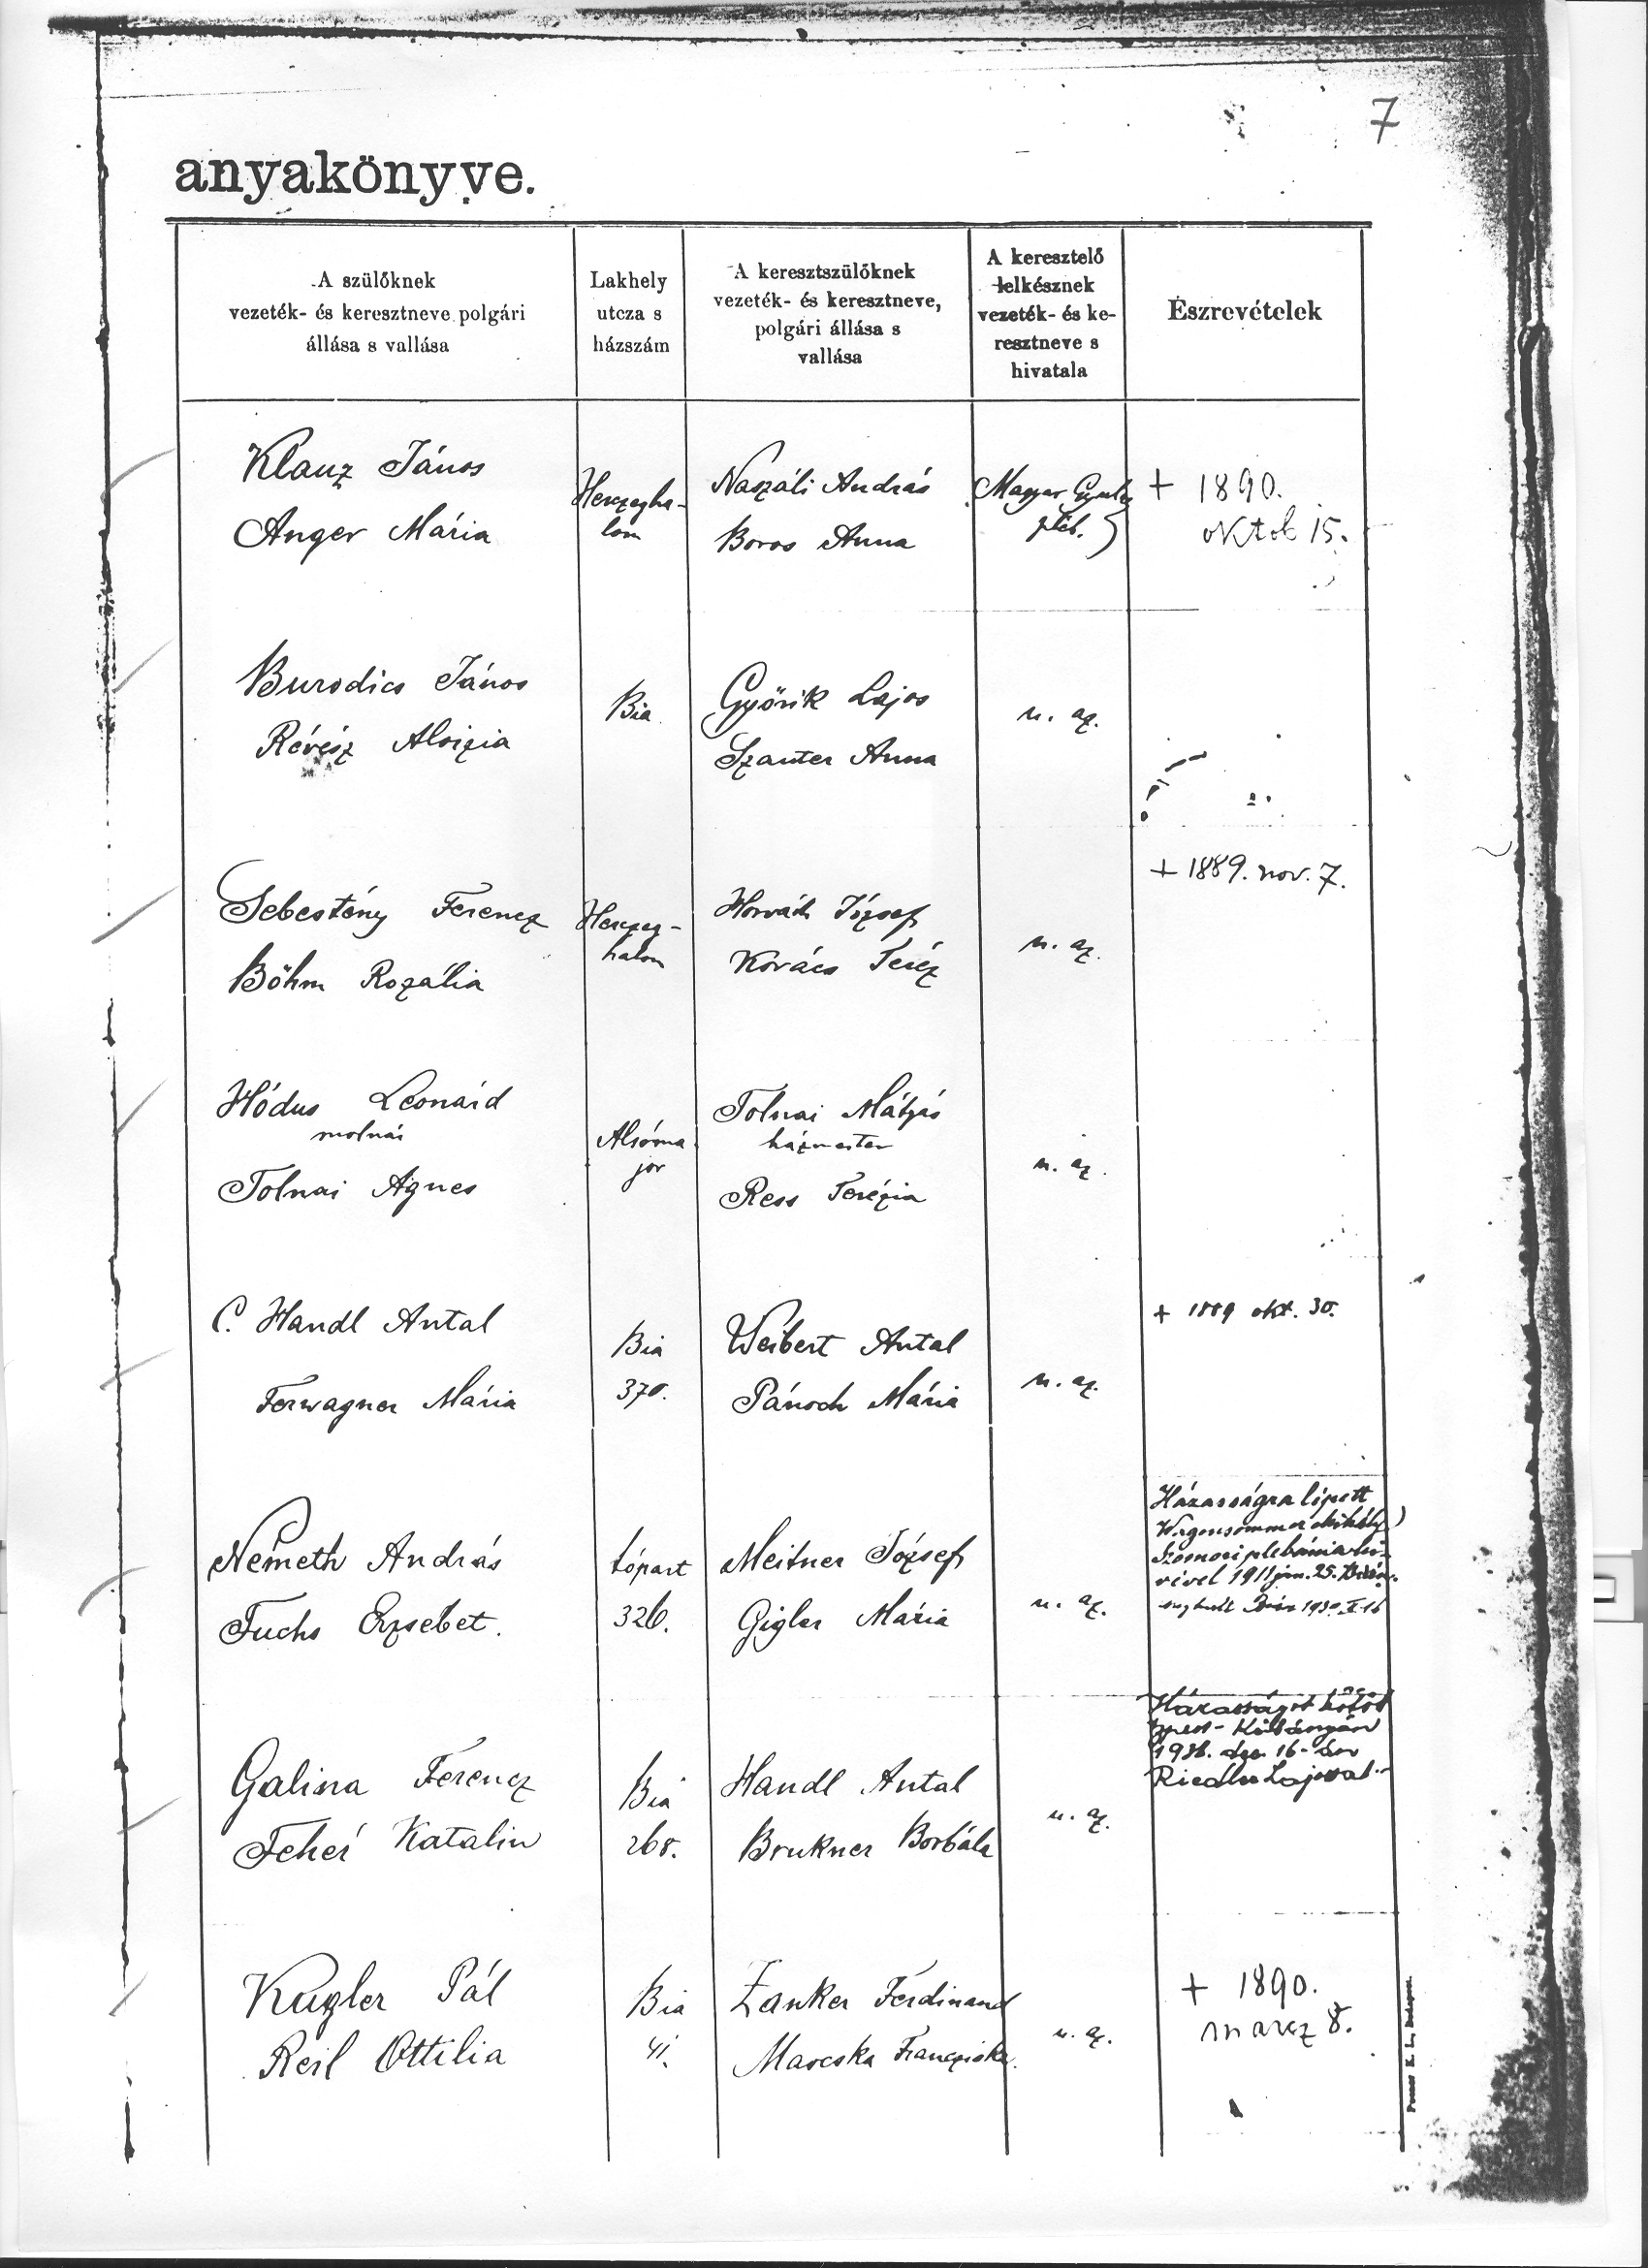 7
anyakönyve.
A szülőknek
vezeték- és keresztneve polgári
állása s vallása
Lakhely
utcza s
házszám
A keresztszülőknek
vezeték- és keresztneve,
polgári állása s
vallása
A keresztelő
lelkésznek
vezeték- és ke-
resztneve s
hivatala
Észrevételek
Klauz János
Anger Mária
Herczegha-
lom
Naszáli András
Boros Anna
Magyar Gyula
pléb.
+ 1890.
oktob 15.
Burodics János
Révész Aloizia
Bia
Győrik Lajos
Szauter Anna
u. az.
Sebestény Ferencz
Böhm Rozália
Herczeg-
halom
Horváth József
Kovács Teréz
u. az.
+ 1889. nov. 7.
Hódus Leonárd
molnár
Tolnai Ágnes
Alsóma
jor
Tolnai Mátyás
házmester
Ress Terézia
u. az.
C. Handl Antal
Ferwagner Mária
Bia
370.
Weibert Antal
Pánoch Mária
u. az.
+ 1889 okt. 30.
Németh András
Fuchs Erzsébet.
Lópart
326.
Meitner József
Gigler Mária
u. az.
Házasságra lépett
plébánia hí-
rével 1911 jan. 25.
Galina Ferencz
Fehér Katalin
Bia
268.
Handl Antal
Brukner Borbála
u. az.
Házasságot kötött
Kőbányán
16-án
Lajossal
Kugler Pál
Reil Ottilia
Bia
41.
Zanker Ferdinand
Marcska Francziska.
u. az.
+ 1890.
marcz 8.